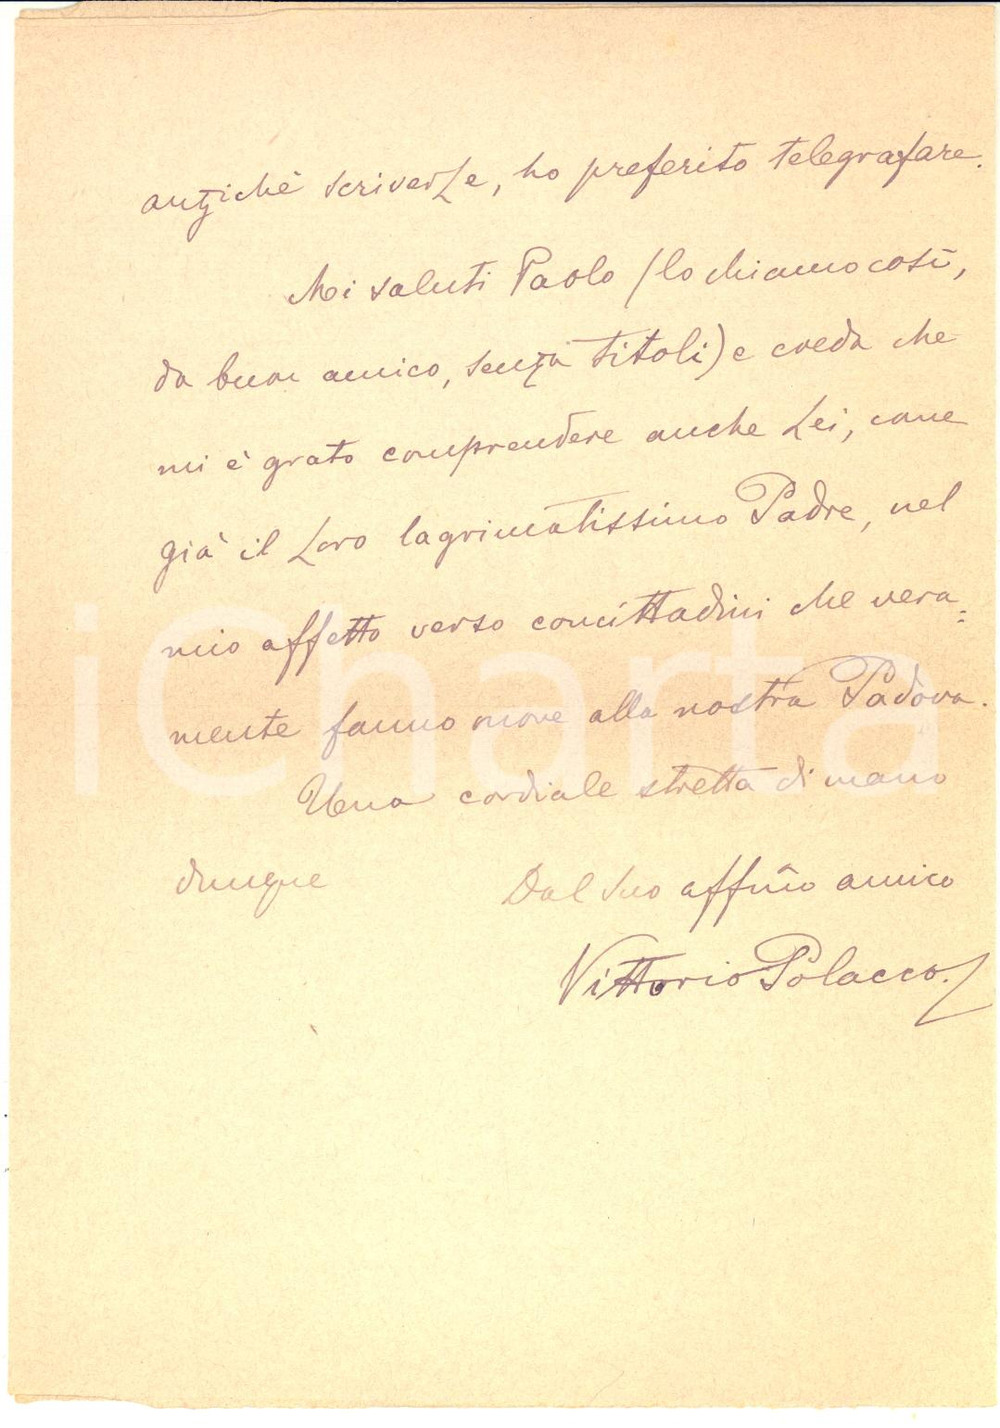 anzichè scriverLe, ho preferito telegrafare.
Mi saluti Paolo (lo chiamo così,
da buon amico, senza titoli) e creda che
mi è grato comprendere anche Lei, come
già il Loro lagrimatissimo Padre, nel
mio affetto verso concittadini che vera=
mente fanno onore alla nostra Padova.
Una cordiale stretta di mano
dunque Dal Suo affmo amico
Vittorio Polacco.
iCharta